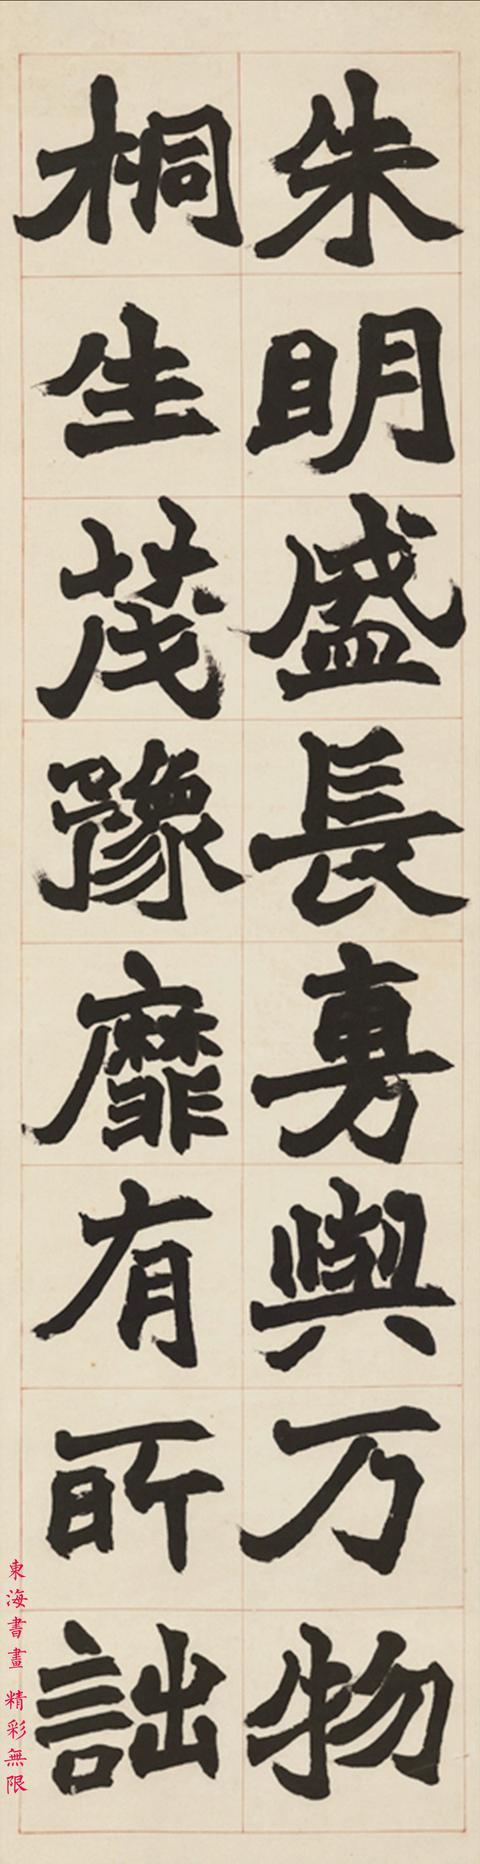 朱明盛長旉與万物
桐生茂豫靡有所詘
東海書畫 精彩無限